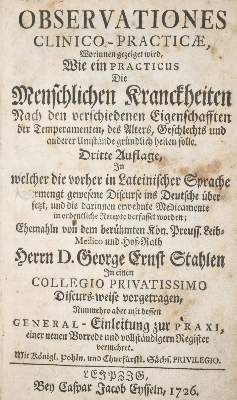 OBSERVATIONES
CLINICO-PRACTICÆ,
Worinnen gezeiget wird,
Wie ein PRACTICUS
Die
Menschlichen Kranckheiten
Nach den verschiedenen Eigenschafften
der Temperamenten, des Alters, Geschlechts und
anderer Umstände gründlich heilen solle.
Dritte Auflage,
In
welcher die vorher in Lateinischer Sprache
vermengt gewesene Discurse ins Deutsche über
setzt, und die darinnen erwehnte Medicamente
in ordentliche Recepte verfasset worden;
Ehemahln von dem berühmten Kön. Preuss. Leib-
Medico und Hof-Rath
Herrn D. George Ernst Stahlen
In einem
COLLEGIO PRIVATISSIMO
Discurs-weise vorgetragen,
Nunmehro aber mit dessen
GENERAL-Einleitung zur PRAXI,
einer neuen Vorrede und vollständigem Register
vermehret.
Mit Königl. Pohln. und Churfürstl. Sächs. PRIVILEGIO.
LEIPZIG,
Bey Caspar Jacob Eysseln, 1726.